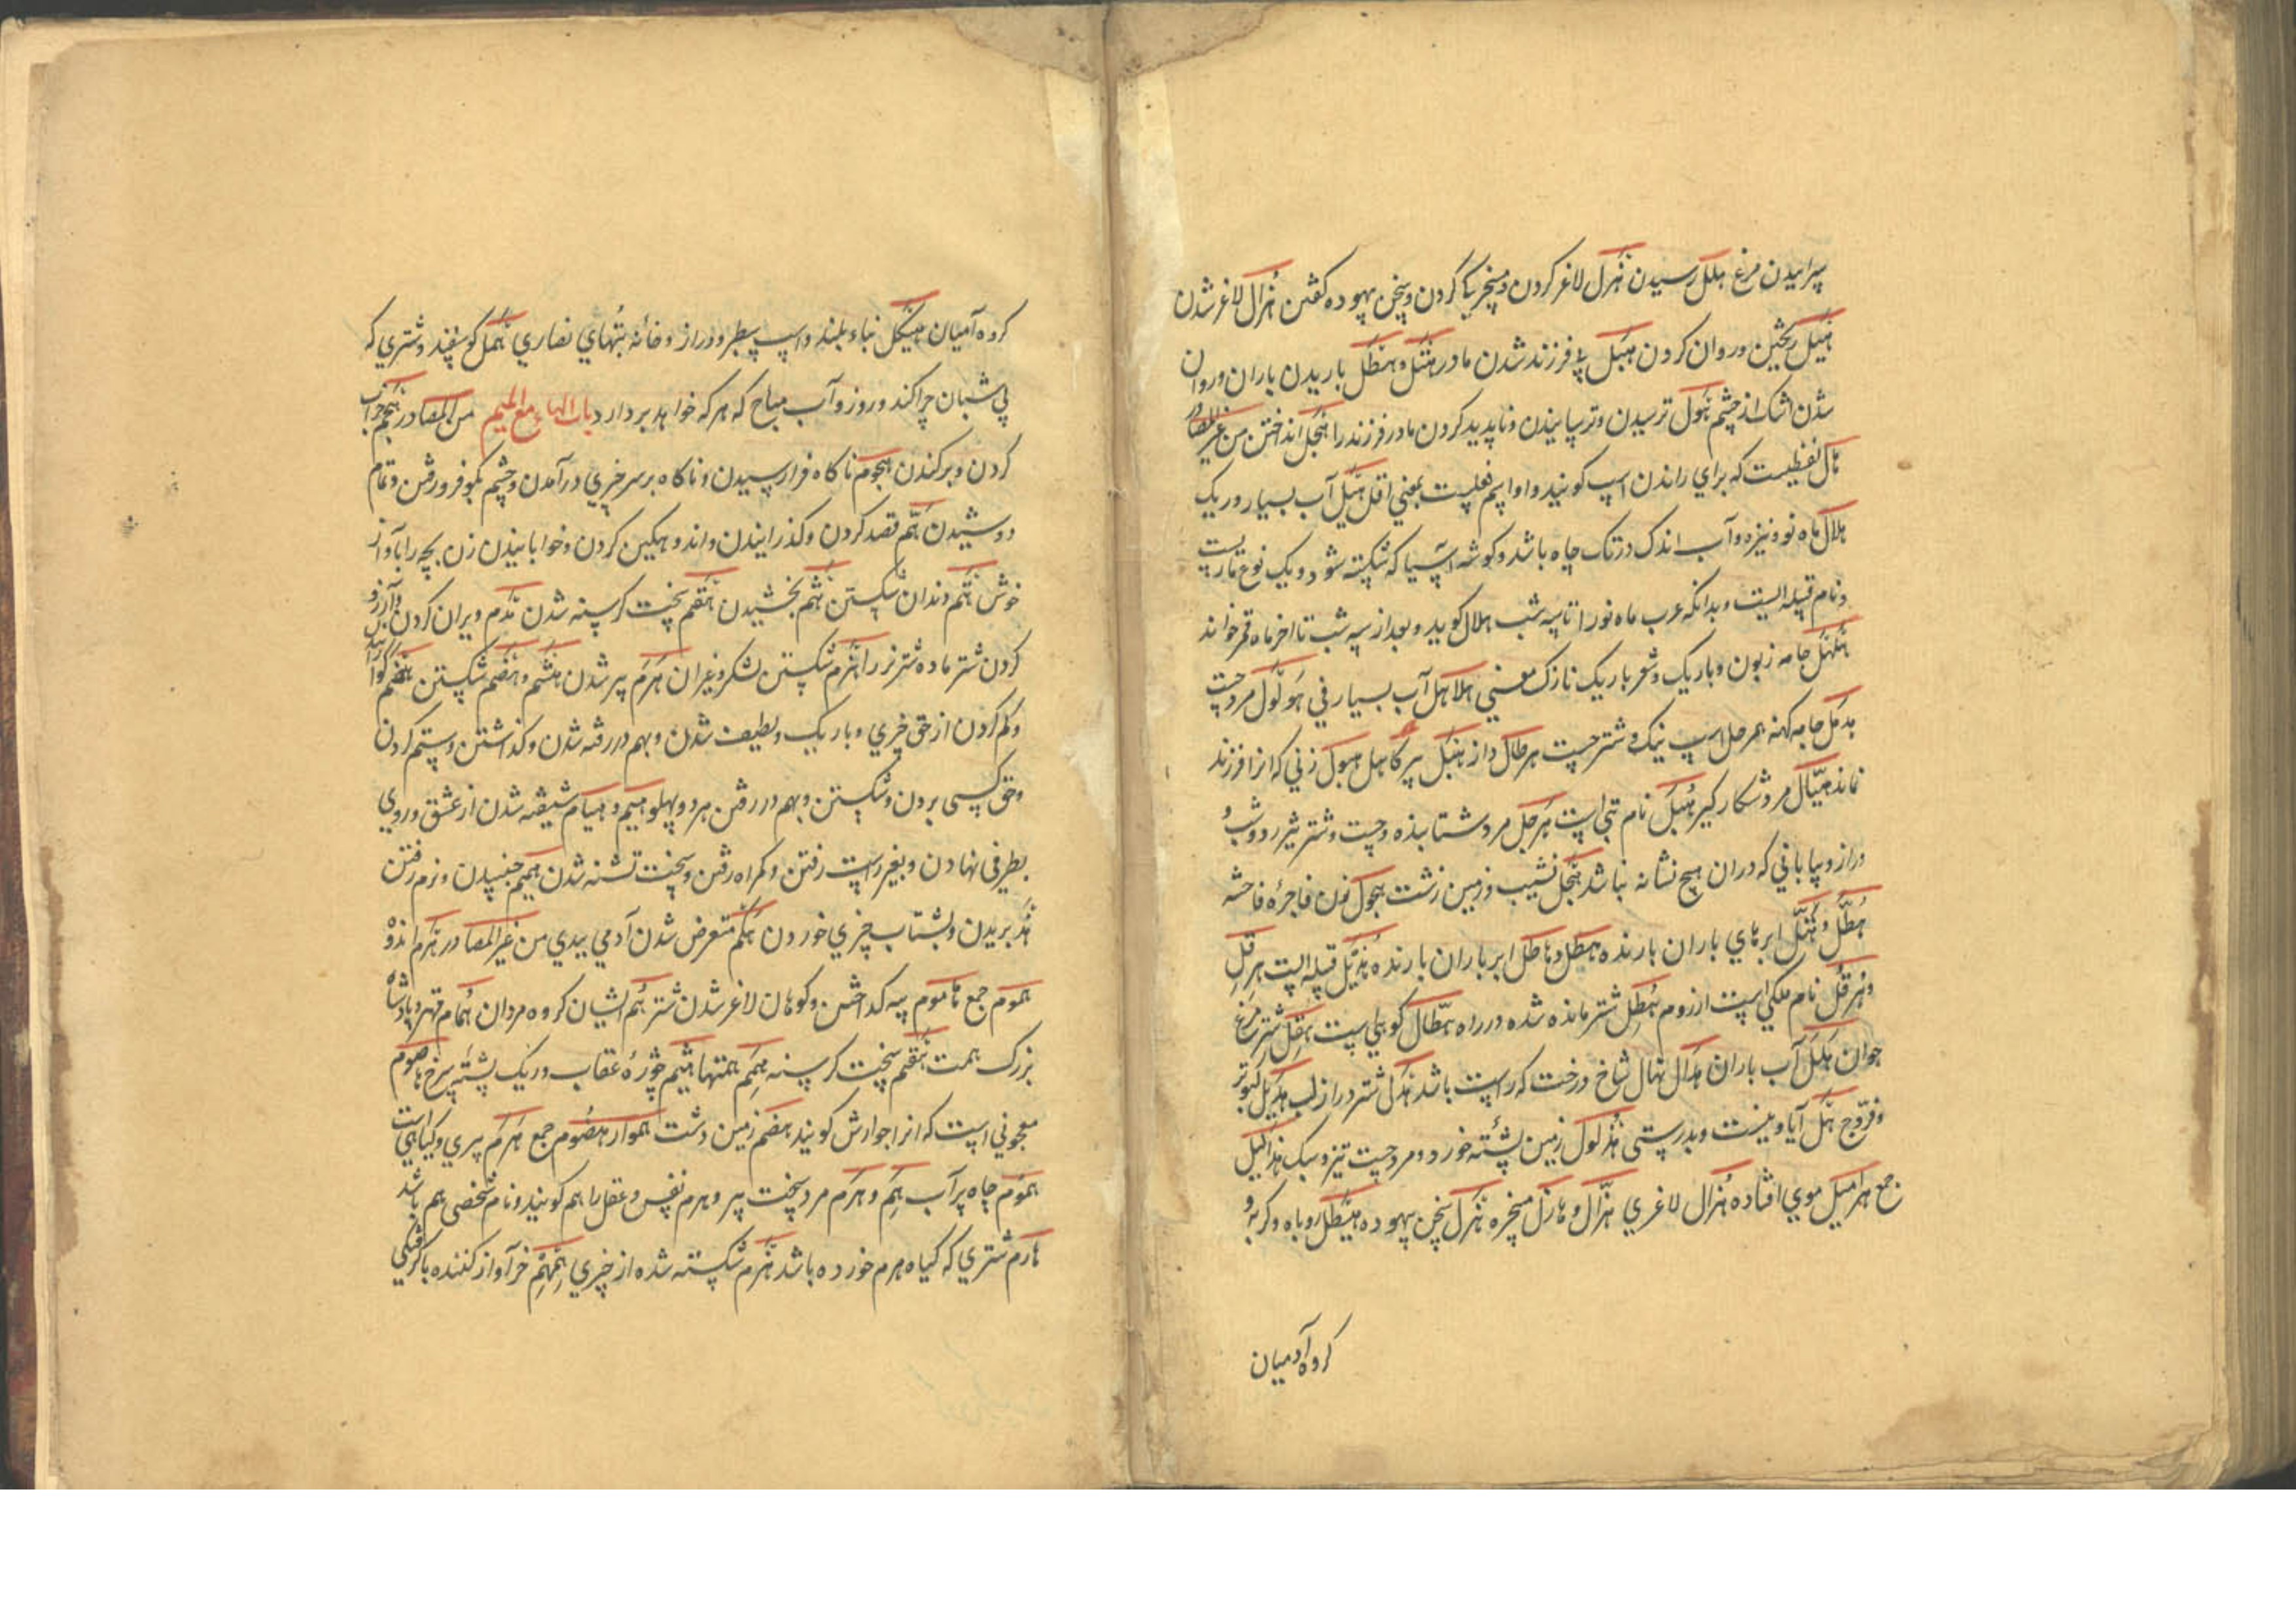 سراییدن مرغ هلل رسیدن هَزل لاغر کردن و مسخرگی کردن و سخن بیهوده گفتن هُزال لاغر شدن
هَیل ریختن و روان کردن هَبَل بی فرزند شدن مادر هَتَل و هَطَل باریدن باران و روان
شدن اشک از چشم هَول ترسیدن و ترسانیدن و ناپدید کردن مادر فرزند را هَجل انداختن من غیر المصادر
هال لفظیست که برای راندن اسپ گویند و او اسم فعلست بمعنی اقل هَیل آب بسیار و ریک
هلال ماه نو و نیزه و آب اندک در تک چاه باشد و گوشه آسیا که شکسته شود و یک نوع ماریست
و نام قبیله ایست و بدانکه عرب ماه نو را تا سه شب هلال گوید و بعد از سه شب تا اخر ماه قمر خواند
هَلهَل جامه زبون و باریک و شعر باریک نازک معنی هلاهل آب بسیار فی هَولّول مرد چست
هِدمل جامه کهنه هرجل اسپ نیک و شتر چست هرطال دراز هِبَل پیر کاهل هبول زنی که انرا فرزند
نماند هبّال مرد شکار گیر هُبَل نام بتی است هَرجل مرد شتابنده و چست و شتر تیزرو و شب
دراز و بیابانی که دران هیچ نشانه نباشد هَجل نشیب و زمین زشت هجول زن فاجره فاحشه
هُطّل و هُتّل ابرهای باران بارنده هَطِل و هاطل ابر باران بارنده هُذَیل قبیله ایست هِرقِل
و هِرَقل نام ملکی است از روم هِطل شتر مانده شده در راه هطّال کوهی است هِقل شتر مرغ
جوان هَلَل آب باران هَدال نهال شاخ درخت که راست باشد هَدِل شتر دراز لب هَدیل کبوتر
و فرّوج هَل آیا و نیست و بدرستی هُذلول زمین پشته خورد و مرد چست تیز و سبک هذالیل
جمع هرامیل موی افتاده هُزال لاغری هزّال و هازل مسخره هَزل سخن بیهوده هَیطل روباه و گربه و
کروه آدمیان
کروه آدمیان هَیکل بناء بلند و اسپ سطبر و دراز و خانه بتهای نصاری هَمَل گوسفند و شتری که
بی شبان چرا کند و روز و آب مباح که هرکه خواهد بردارد باب الهاء مع المیم من المصادر هَجم خراب
کردن و برکندن هجوم ناکاه فرا رسیدن و ناکاه بر سر چیزی درآمدن و چشم بکو فرو رفتن و تمام
دوشیدن هَمّ قصد کردن و گذرانیدن و اندوهگین کردن و خوابانیدن زن بچه را بآواز
خوش هَتم دندان شکستن هَثم بخشیدن هَقَم سخت گرسنه شدن هَدم ویران کردن و آرزو
کردن شتر ماده شتر نر را هَزم شکستن لشکر و غیران هَرَم پیر شدن هَشم و هَصم شکستن هَضم گوارانیدن
و کم کردن از حق چیزی و باریک و لطیف شدن و بهم در رفته شدن و گذاشتن و ستم کردن
و حق کسی بردن و شکستن و بهم در رفتن هر دو پهلو هَیم و هیام شیفته شدن از عشق و روی
بطرفی نهادن و بغیر راست رفتن و گمراه رفتن و سخت تشنه شدن هَمیم جنبیدن و نرم رفتن
هَذم بریدن و بشتاب چیزی خوردن تَهکّم متعرض شدن آدمی ببدی من غیر المصادر هَمّ اندوه
هموم جمع هاموم پیه گداختن و کوهان لاغر شدن شتر هُم ایشان کروه مردان هُمام مهتر و پادشاه
بزرک همت هَقِم سخت گرسنه هِمَم همتها هَیثم چوزهٔ عقاب و ریک پشته سرخ هاضوم
معجونی است که انرا جوارش گویند هضم زمین دشت هموار هضوم جمع هَرَم پیری و گیاهی است
هَموم چاه پر آب هِمّ و هَرِم مرد سخت پیر و هرم نفس و عقل را هم گویند و نام شخصی هم باشد
هارم شتری که گیاه هرم خورده باشد هَزم شکسته شده از چیزی هِمهِم خر آواز کننده با گرفتگی